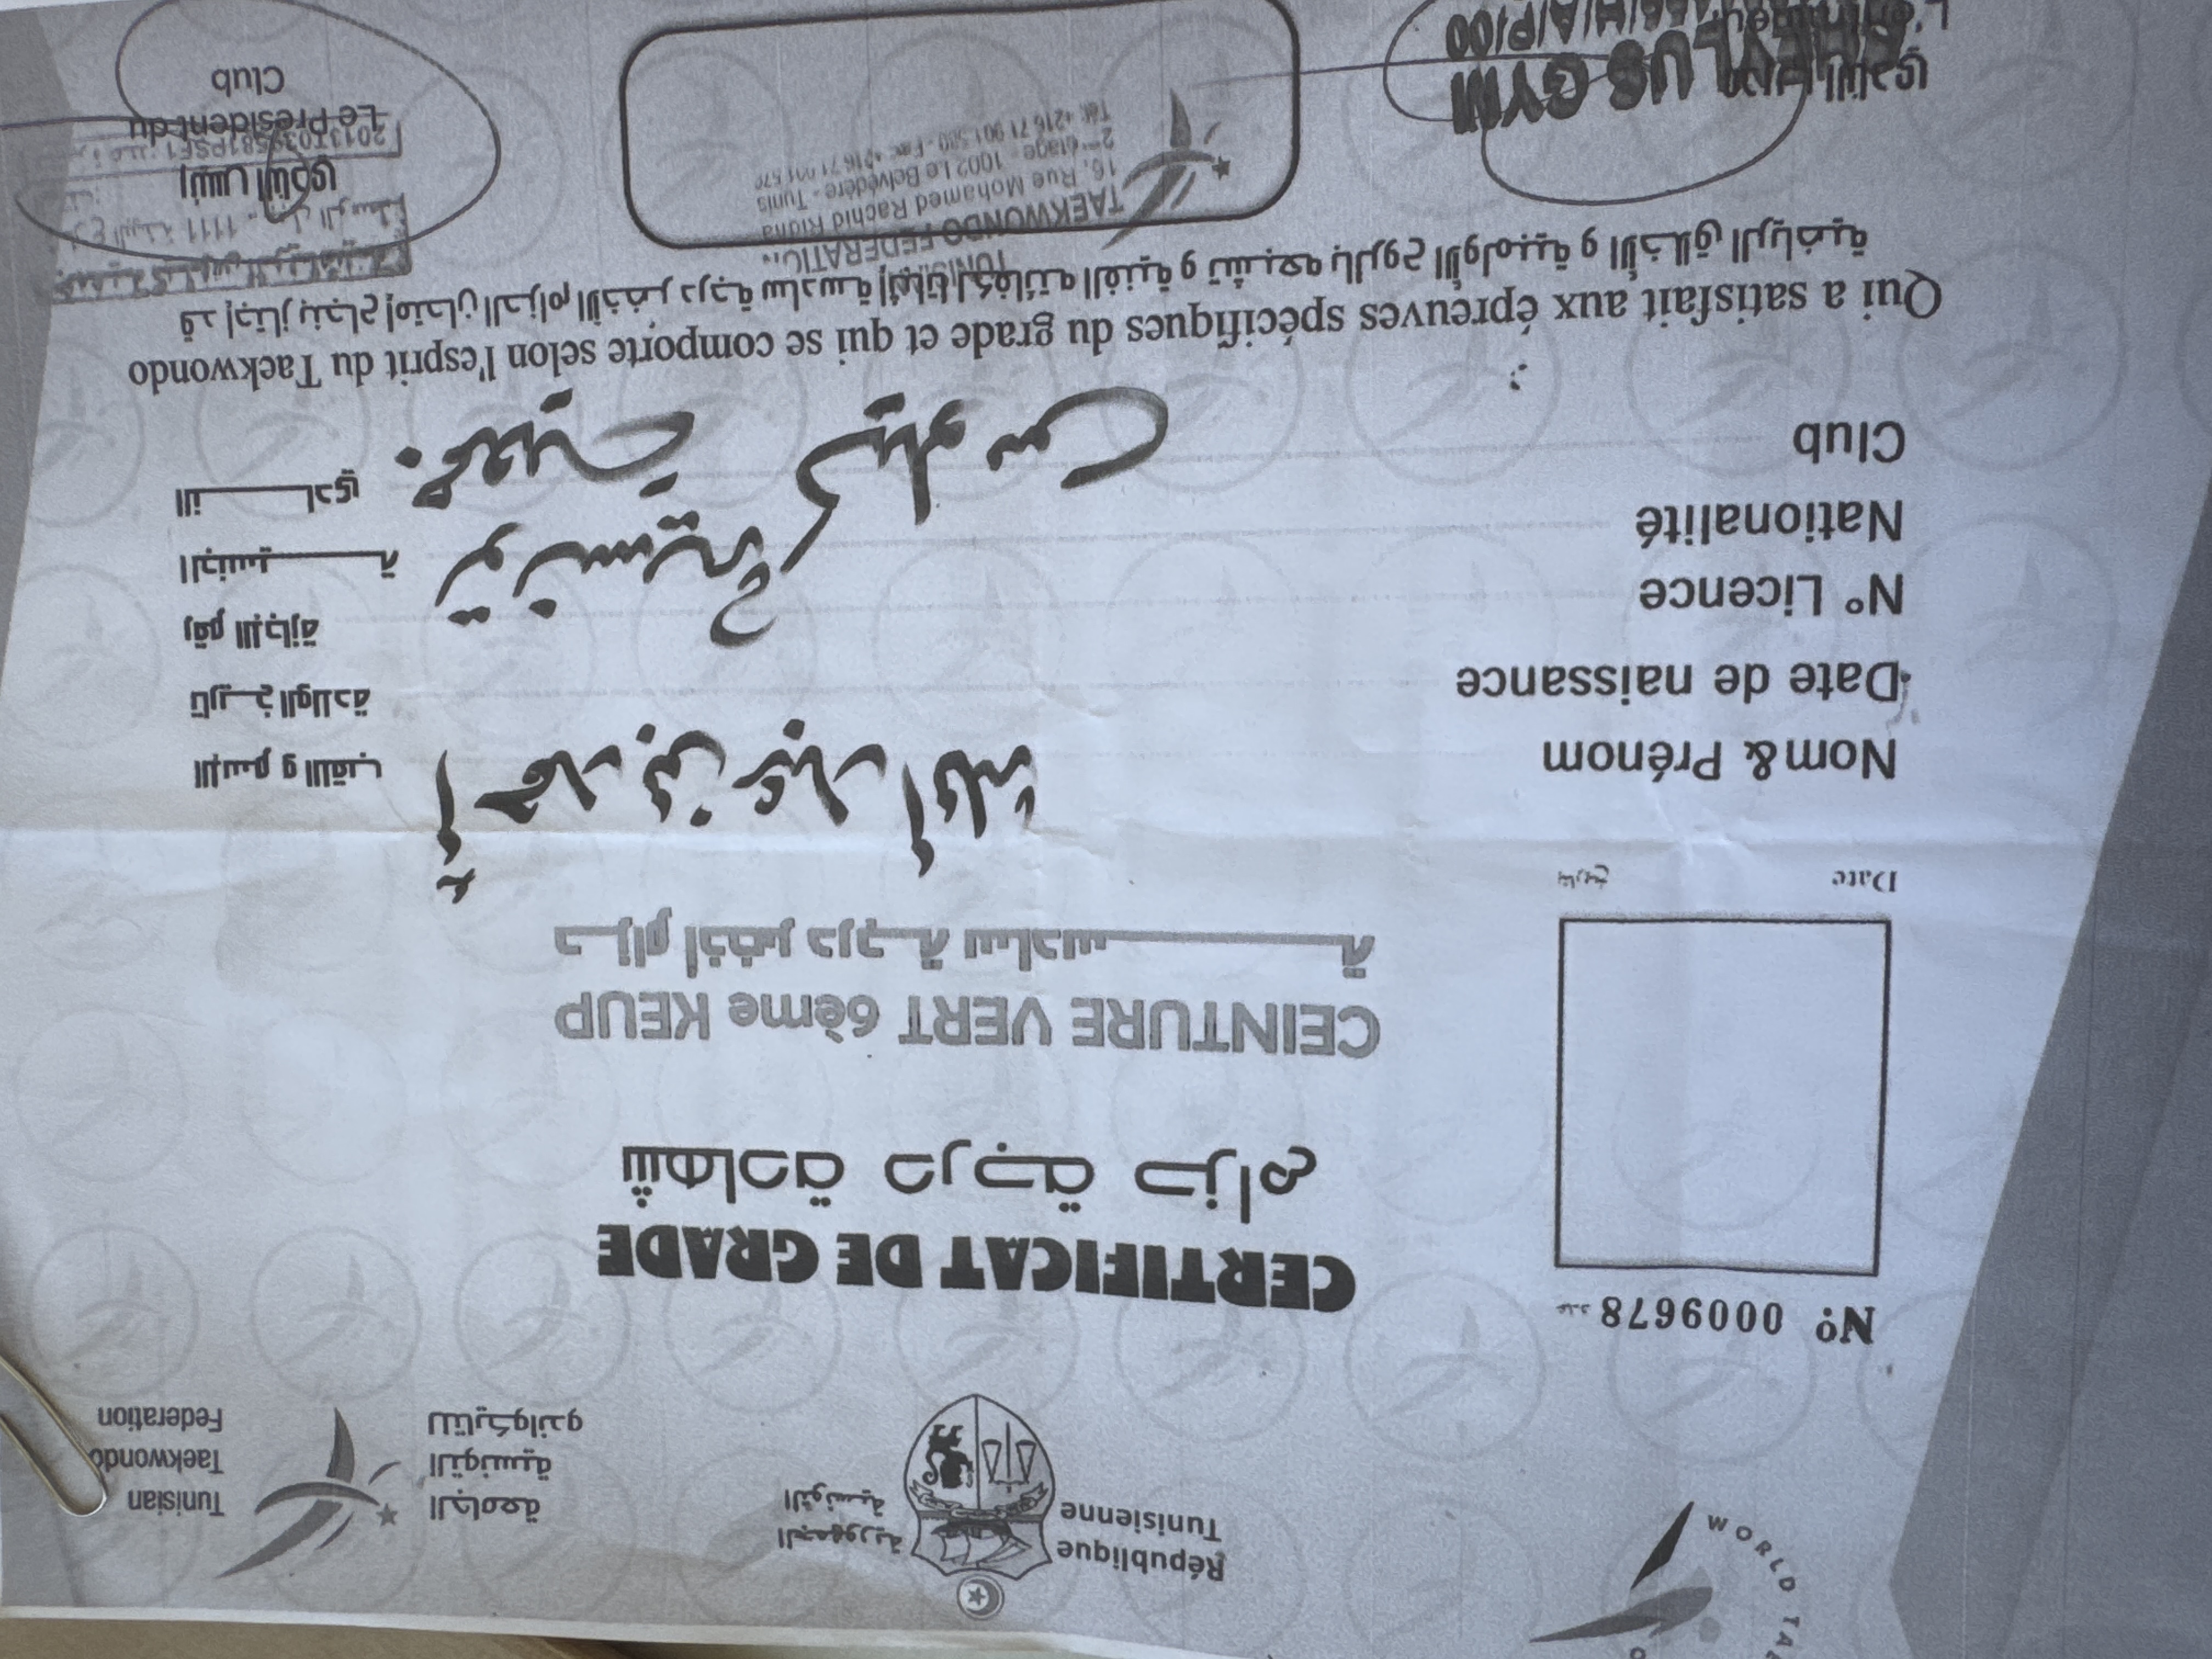 WORLD TA
République
Tunisienne
الجمهورية
التونسية
الجامعة
التونسية
للتايكواندو
Tunisian
Taekwondo
Federation
Nº 0009678 عدد
CERTIFICAT DE GRADE
شهادة درجة حزام
CEINTURE VERT 6ème KEUP
حزام اخضر درجة سادسة
Date تاريخ
Nom& Prénom أحمد بن عبد الله الإسم و اللقب
Date de naissance تاريخ الولادة
N° Licence رقم الإجازة
Nationalité تونسية الجنسية
Club النادي
Qui a satisfait aux épreuves spécifiques du grade et qui se comporte selon l'esprit du Taekwondo
قد إجتاز بنجاح إمتحان الحزام الأخضر درجة سادسة إثباتا لكفائته الفنية و تشبعه بالروح الأولمبية و الأخلاق الرياضية
TAEKWONDO FEDERATION
16, Rue Mohamed Rachid Ridha
2ème étage - 1002 Le Belvédère - Tunis
Tél: +216 71 901 580 - Fax: +216 71 901 579
رئيس النادي
Le Président du
Club
GYM